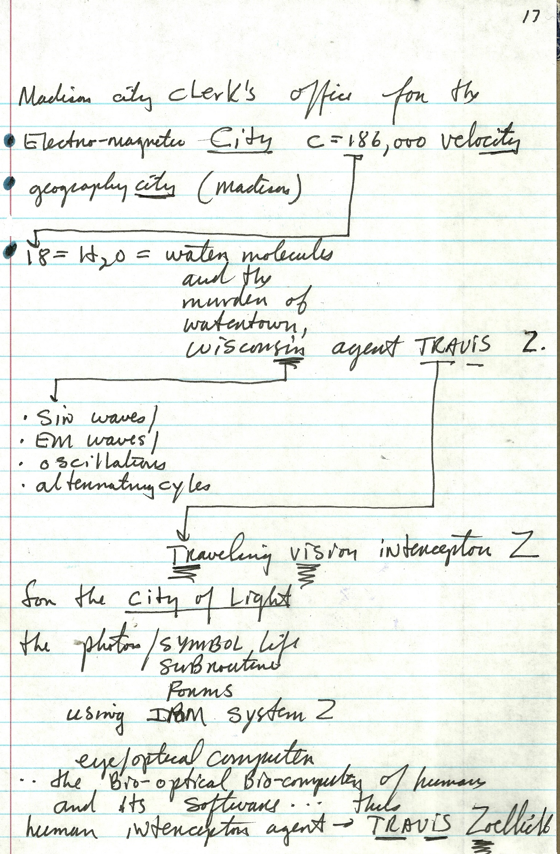 17
Madison city clerk's office for the
• Electro-magnetic City c=186,000 velocity
• geography city (madison)
• 18 = H2O = water molecules
and the
murder of
watertown,
wisconsin agent TRAVIS Z.
• Sin waves/
• EM waves/
• oscillations
• alternating cycles
Traveling vision interceptor Z
for the City of Light
the photon/SYMBOL Life
Subroutine
Forms
using IBM System Z
eye/optical computer
.. the Bio-optical Bio-computer of humans
and its Software ... thus
human interceptor agent → TRAVIS Zoellick